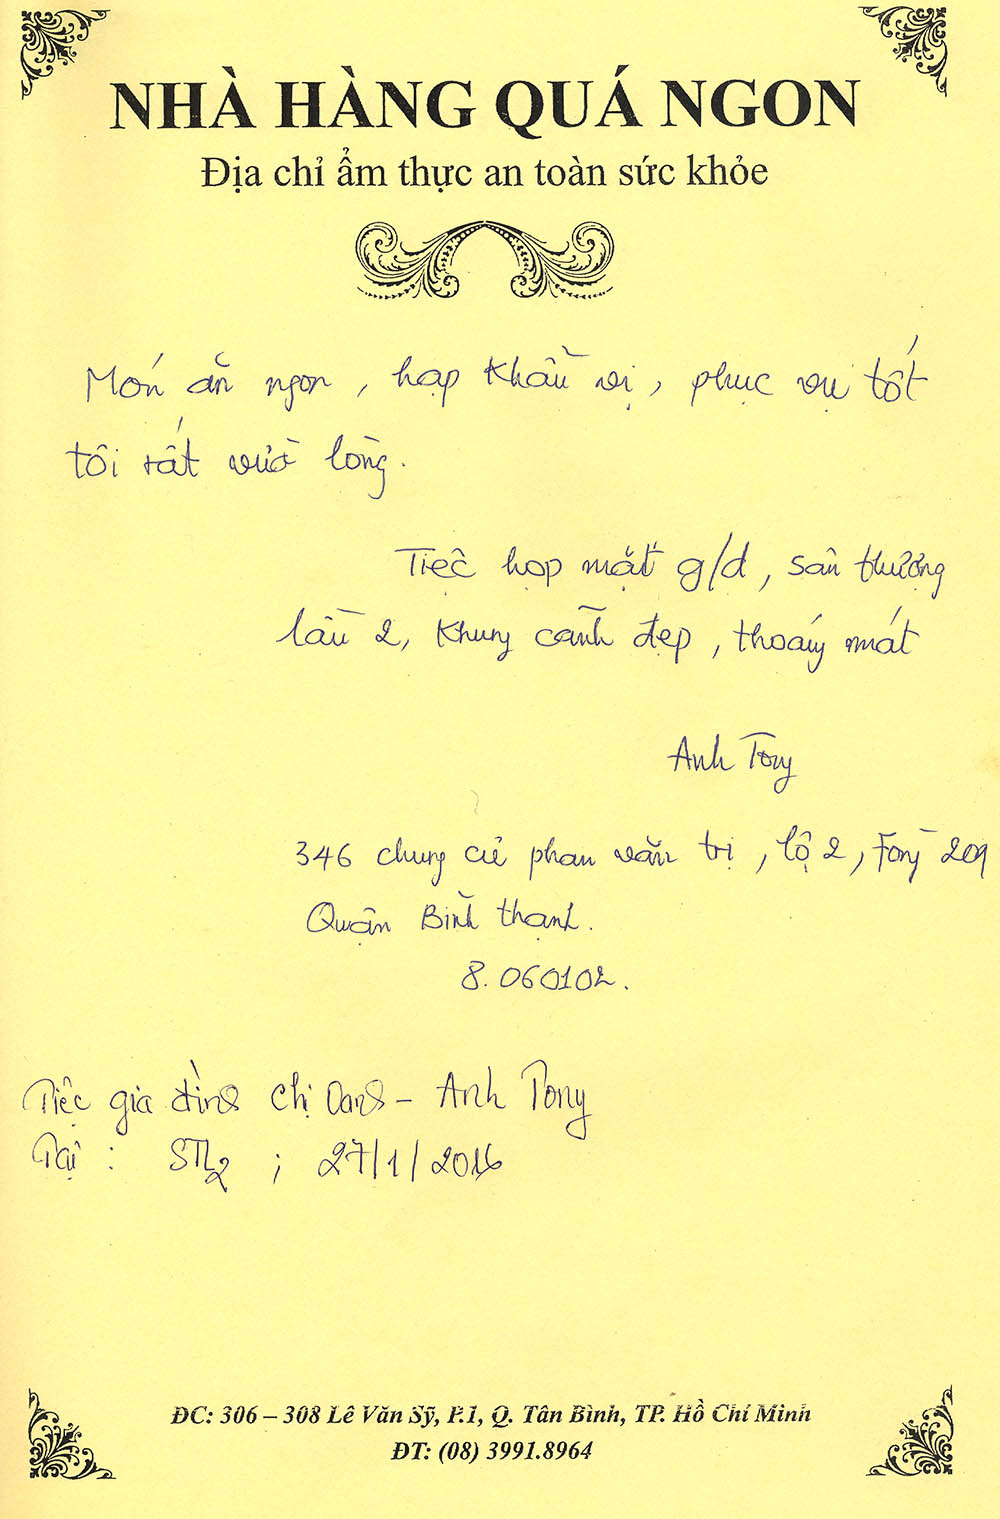 NHÀ HÀNG QUÁ NGON
Địa chỉ ẩm thực an toàn sức khỏe
Món ăn ngon, hợp khẩu vị, phục vụ tốt
tôi rất vừa lòng.
Tiệc họp mặt g/đ, sân thượng
lầu 2, khung cảnh đẹp, thoáng mát
Anh Tony
346 chung cư phan văn trị, lô 2, 209
Quận Bình thạnh.
8.060102.
Tiệc gia đình chị Oanh - Anh Tony
Tại : STL2 ; 27/1/2016
ĐC: 306 – 308 Lê Văn Sỹ, P.1, Q. Tân Bình, TP. Hồ Chí Minh
ĐT: (08) 3991.8964